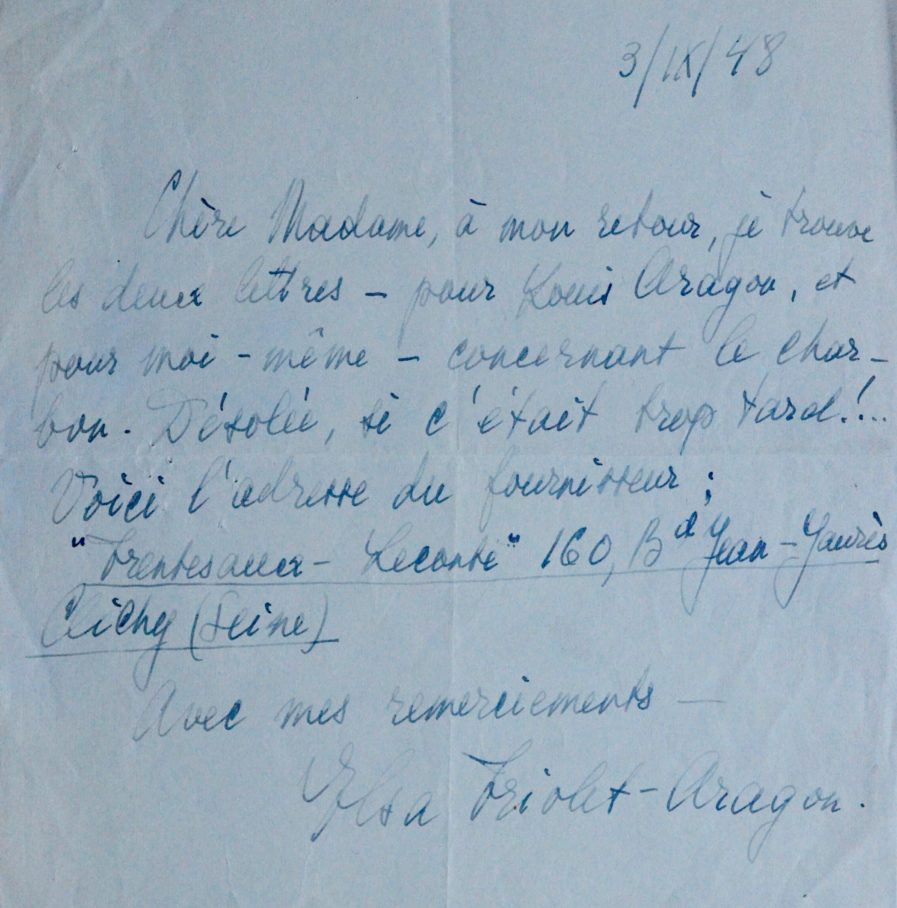 3/IX/48
Chère Madame, à mon retour, je trouve
les deux lettres – pour Louis Aragon, et
pour moi-même – concernant le char-
bon. Désolée, si c'était trop tard!...
Voici l'adresse du fournisseur :
"Trentesaux - Leconte" 160, Bd Jean-Jaurès
Clichy (Seine)
Avec mes remerciements —
Elsa Triolet-Aragon.